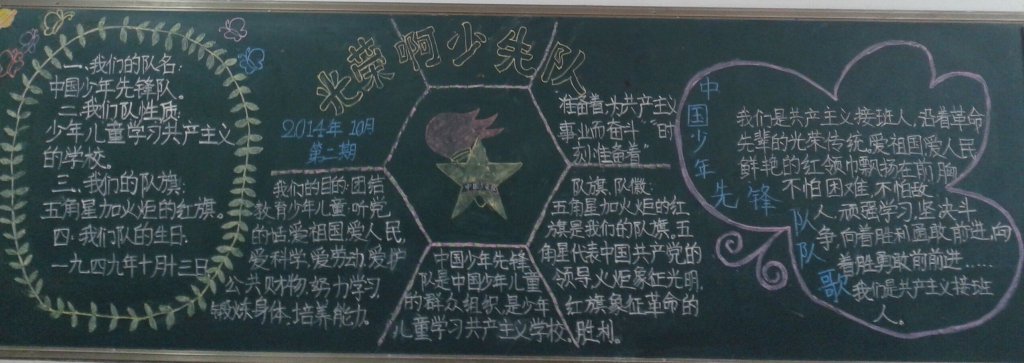 光荣啊少先队
一、我们的队名:
中国少年先锋队。
二、我们队性质:
少年儿童学习共产主义
的学校。
三、我们的队旗:
五角星加火炬的红旗。
四、我们队的生日:
一九四九年十月十三日
2014年10月
第二期
我们的目的:团结
教育少年儿童,听党
的话,爱祖国爱人民
爱科学爱劳动爱护
公共财物,努力学习
锻炼身体,培养能力。
中国少年先锋
队是中国少年儿童
的群众组织,是少年
儿童学习共产主义学校。
准备着,为共产主义
事业而奋斗"时
刻准备着"
队旗、队徽:
五角星加火炬的红
旗是我们的队旗,五
角星代表中国共产党的
领导,火炬象征光明,
红旗象征革命的
胜利。
中国少年先锋队队歌
我们是共产主义接班人,沿着革命
先辈的光荣传统,爱祖国爱人民
鲜艳的红领巾飘扬在前胸
不怕困难,不怕敌
人,顽强学习,坚决斗
争,向着胜利勇敢前进,向
着胜勇敢前前进……
我们是共产主义接班
人。